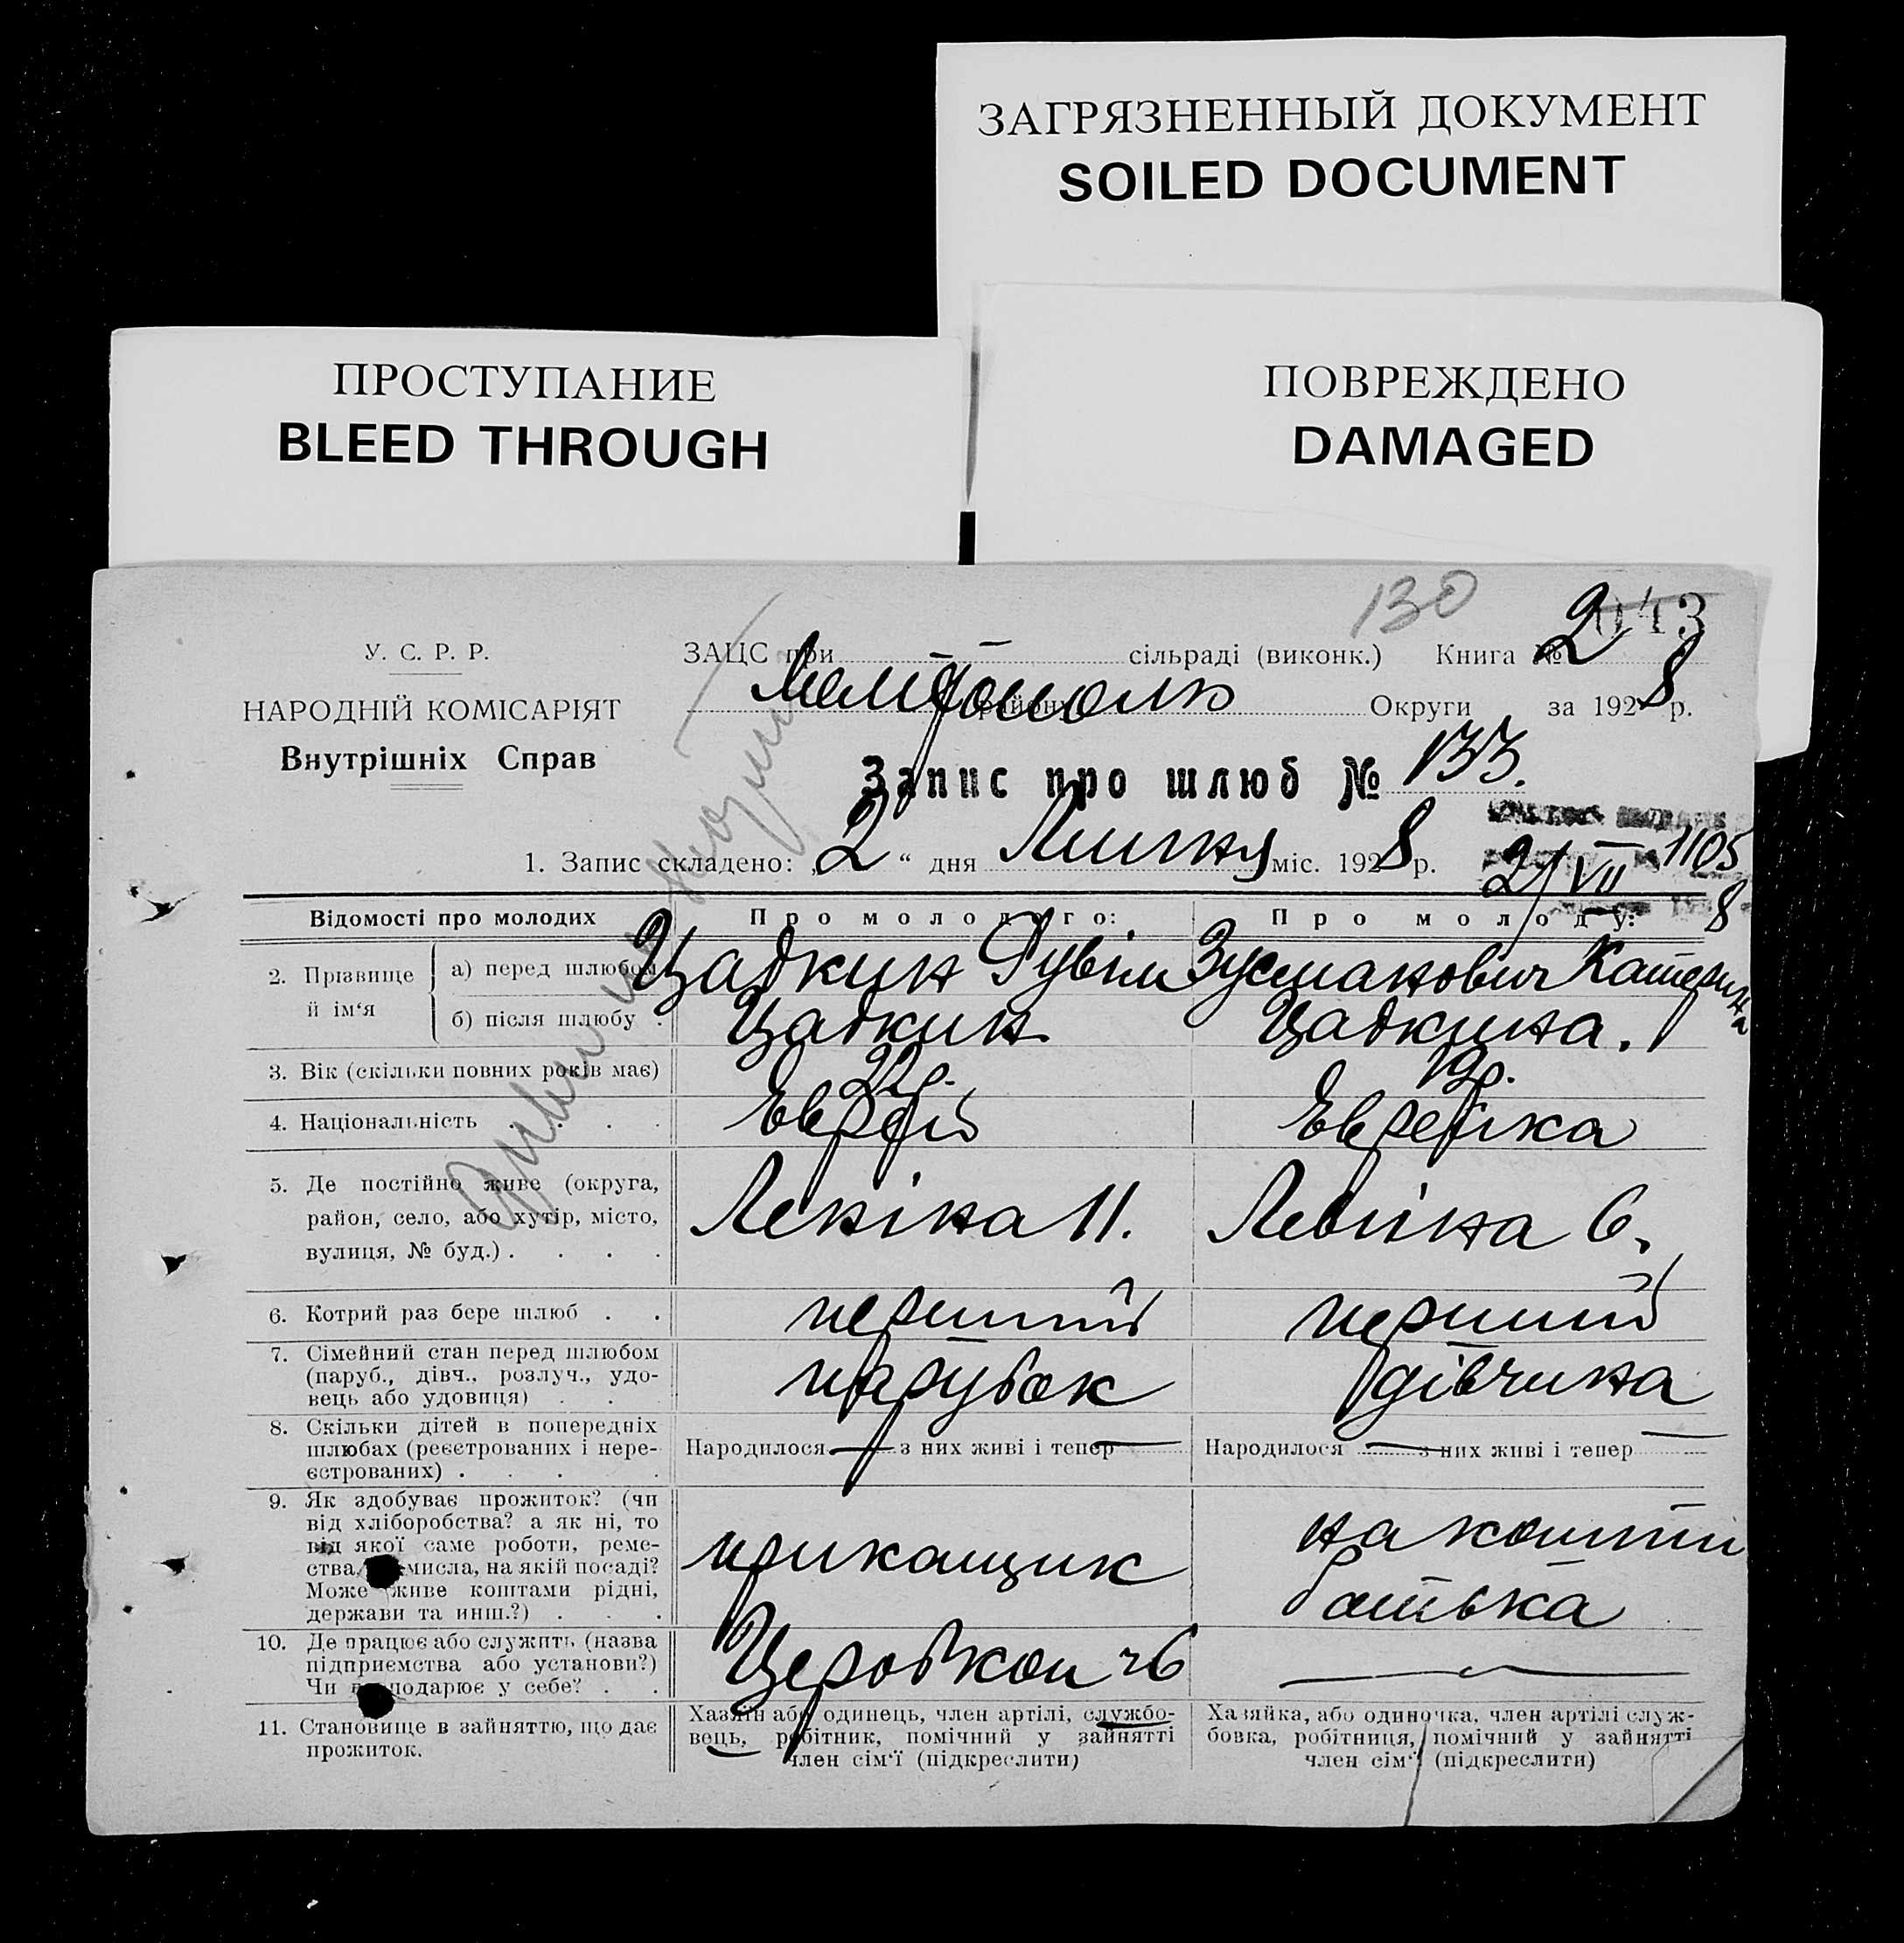 ЗАГРЯЗНЕННЫЙ ДОКУМЕНТ
SOILED DOCUMENT
ПРОСТУПАНИЕ
BLEED THROUGH
ПОВРЕЖДЕНО
DAMAGED
130
У. С. Р. Р.
НАРОДНІЙ КОМІСАРІЯТ
Внутрішніх Справ
ЗАЦС при сільраді (виконк.) Книга № 2
району Округи за 1928 р.
Запис про шлюб № 133.
1. Запис складено: „2“ дня Липня міс. 1928 р.
2/VII 1105
8
Відомості про молодих Про молодого: Про молоду:
2. Прізвище й ім‘я
а) перед шлюбом Цадкин Рувім Зусманович Катерина
б) після шлюбу Цадкин Цадкина.
3. Вік (скільки повних років має) 22р. 19р.
4. Національність Еврей Еврейка
5. Де постійно живе (округа,
район, село, або хутір, місто,
вулиця, № буд.) Леніна 11. Леніна 6.
6. Котрий раз бере шлюб перший перший
7. Сімейний стан перед шлюбом
(паруб., дівч., розлуч., удо-
вець або удовиця) парубок дівчина
8. Скільки дітей в попередніх
шлюбах (реєстрованих і нере-
єстрованих)
Народилося — з них живі і тепер — Народилося — з них живі і тепер —
9. Як здобуває прожиток? (чи
від хліборобства? а як ні, то
від якої саме роботи, реме-
ства, мисла, на якій посаді?
Може живе коштами рідні,
держави та инш.?)
прикащик
на кошти
батька
10. Де працює або служить (назва
підприємства або установи?)
Чи подарює у себе?
Церобкоп —
11. Становище в зайняттю, що дає
прожиток.
Хазяїн або одинець, член артілі, службо-
вець, робітник, помічний у зайнятті
член сім‘ї (підкреслити)
Хазяйка, або одиночка, член артілі служ-
бовка, робітниця, помічний у зайнятті
член сім‘ї (підкреслити)